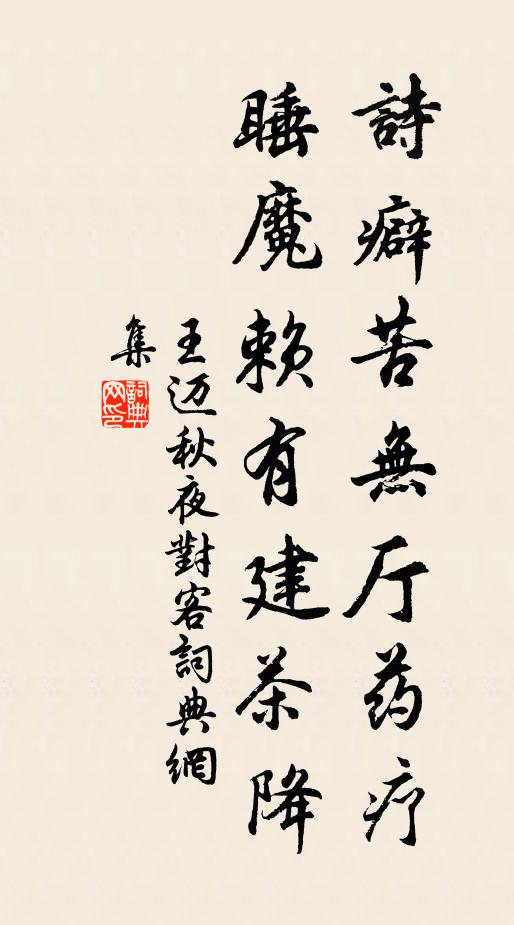 詩癖苦無厅药疗
睡魔赖有建茶降
王迈秋夜對客詞典網
集
詞典网印